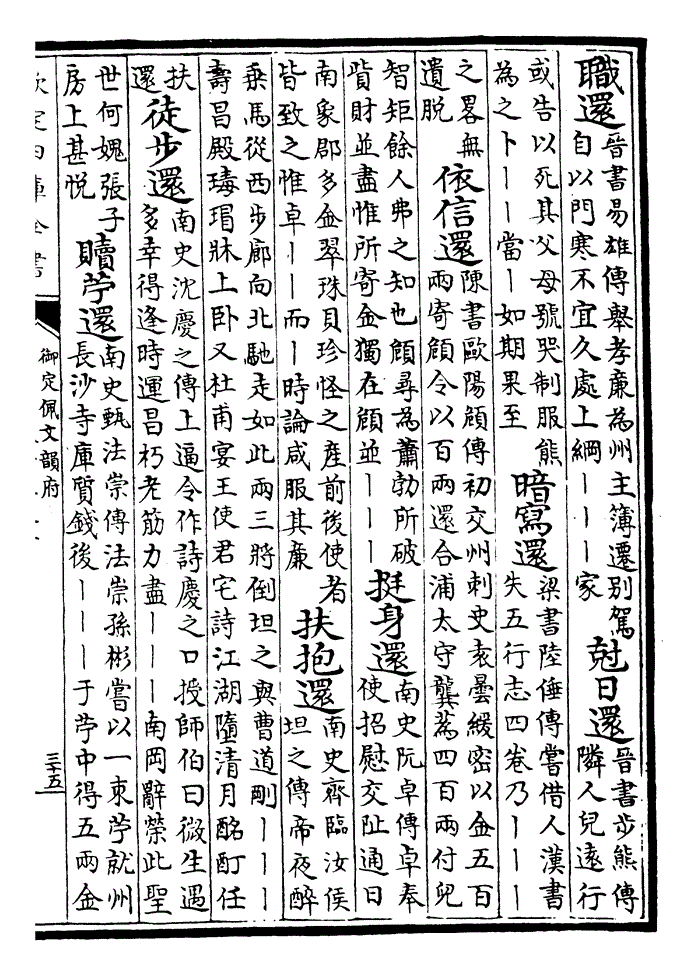 職還
晉書易雄傳舉孝廉為州主簿遷别駕
自以門寒不宜久處上綱丨丨丨家
尅日還
晉書步熊傳
隣人兒遠行
或告以死其父母號哭制服熊
為之卜丨丨當丨如期果至
暗寫還
梁書陸倕傳嘗借人漢書
失五行志四卷乃丨丨丨
之畧無
遺脱
依信還
陳書歐陽頠傳初交州刺史袁曇緩密以金五百
兩寄頠令以百兩還合浦太守龔蒍四百兩付兒
智矩餘人弗之知也頠尋為蕭勃所破
貲財並盡惟所寄金獨在頠並丨丨丨
挺身還
南史阮卓傳卓奉
使招慰交阯通日
南象郡多金翠珠貝珍怪之產前後使者
皆致之惟卓丨丨而丨時論咸服其廉
扶抱還
南史齊臨汝侯
坦之傳帝夜醉
乗馬從西步廊向北馳走如此兩三將倒坦之與曹道剛丨丨丨
壽昌殿瑇瑁牀上卧又杜甫宴王使君宅詩江湖墮清月酩酊任
扶
還
徒步還
南史沈慶之傳上逼令作詩慶之口授師伯曰微生遇
多幸得逢時運昌朽老筋力盡丨丨丨南岡辭榮此聖
世何媿張子
房上甚悦
贖苧還
南史甄法崇傳法崇孫彬嘗以一束苧就州
長沙寺庫質錢後丨丨丨于苧中得五兩金
欽定四庫全書
御定佩文韻府
三十五